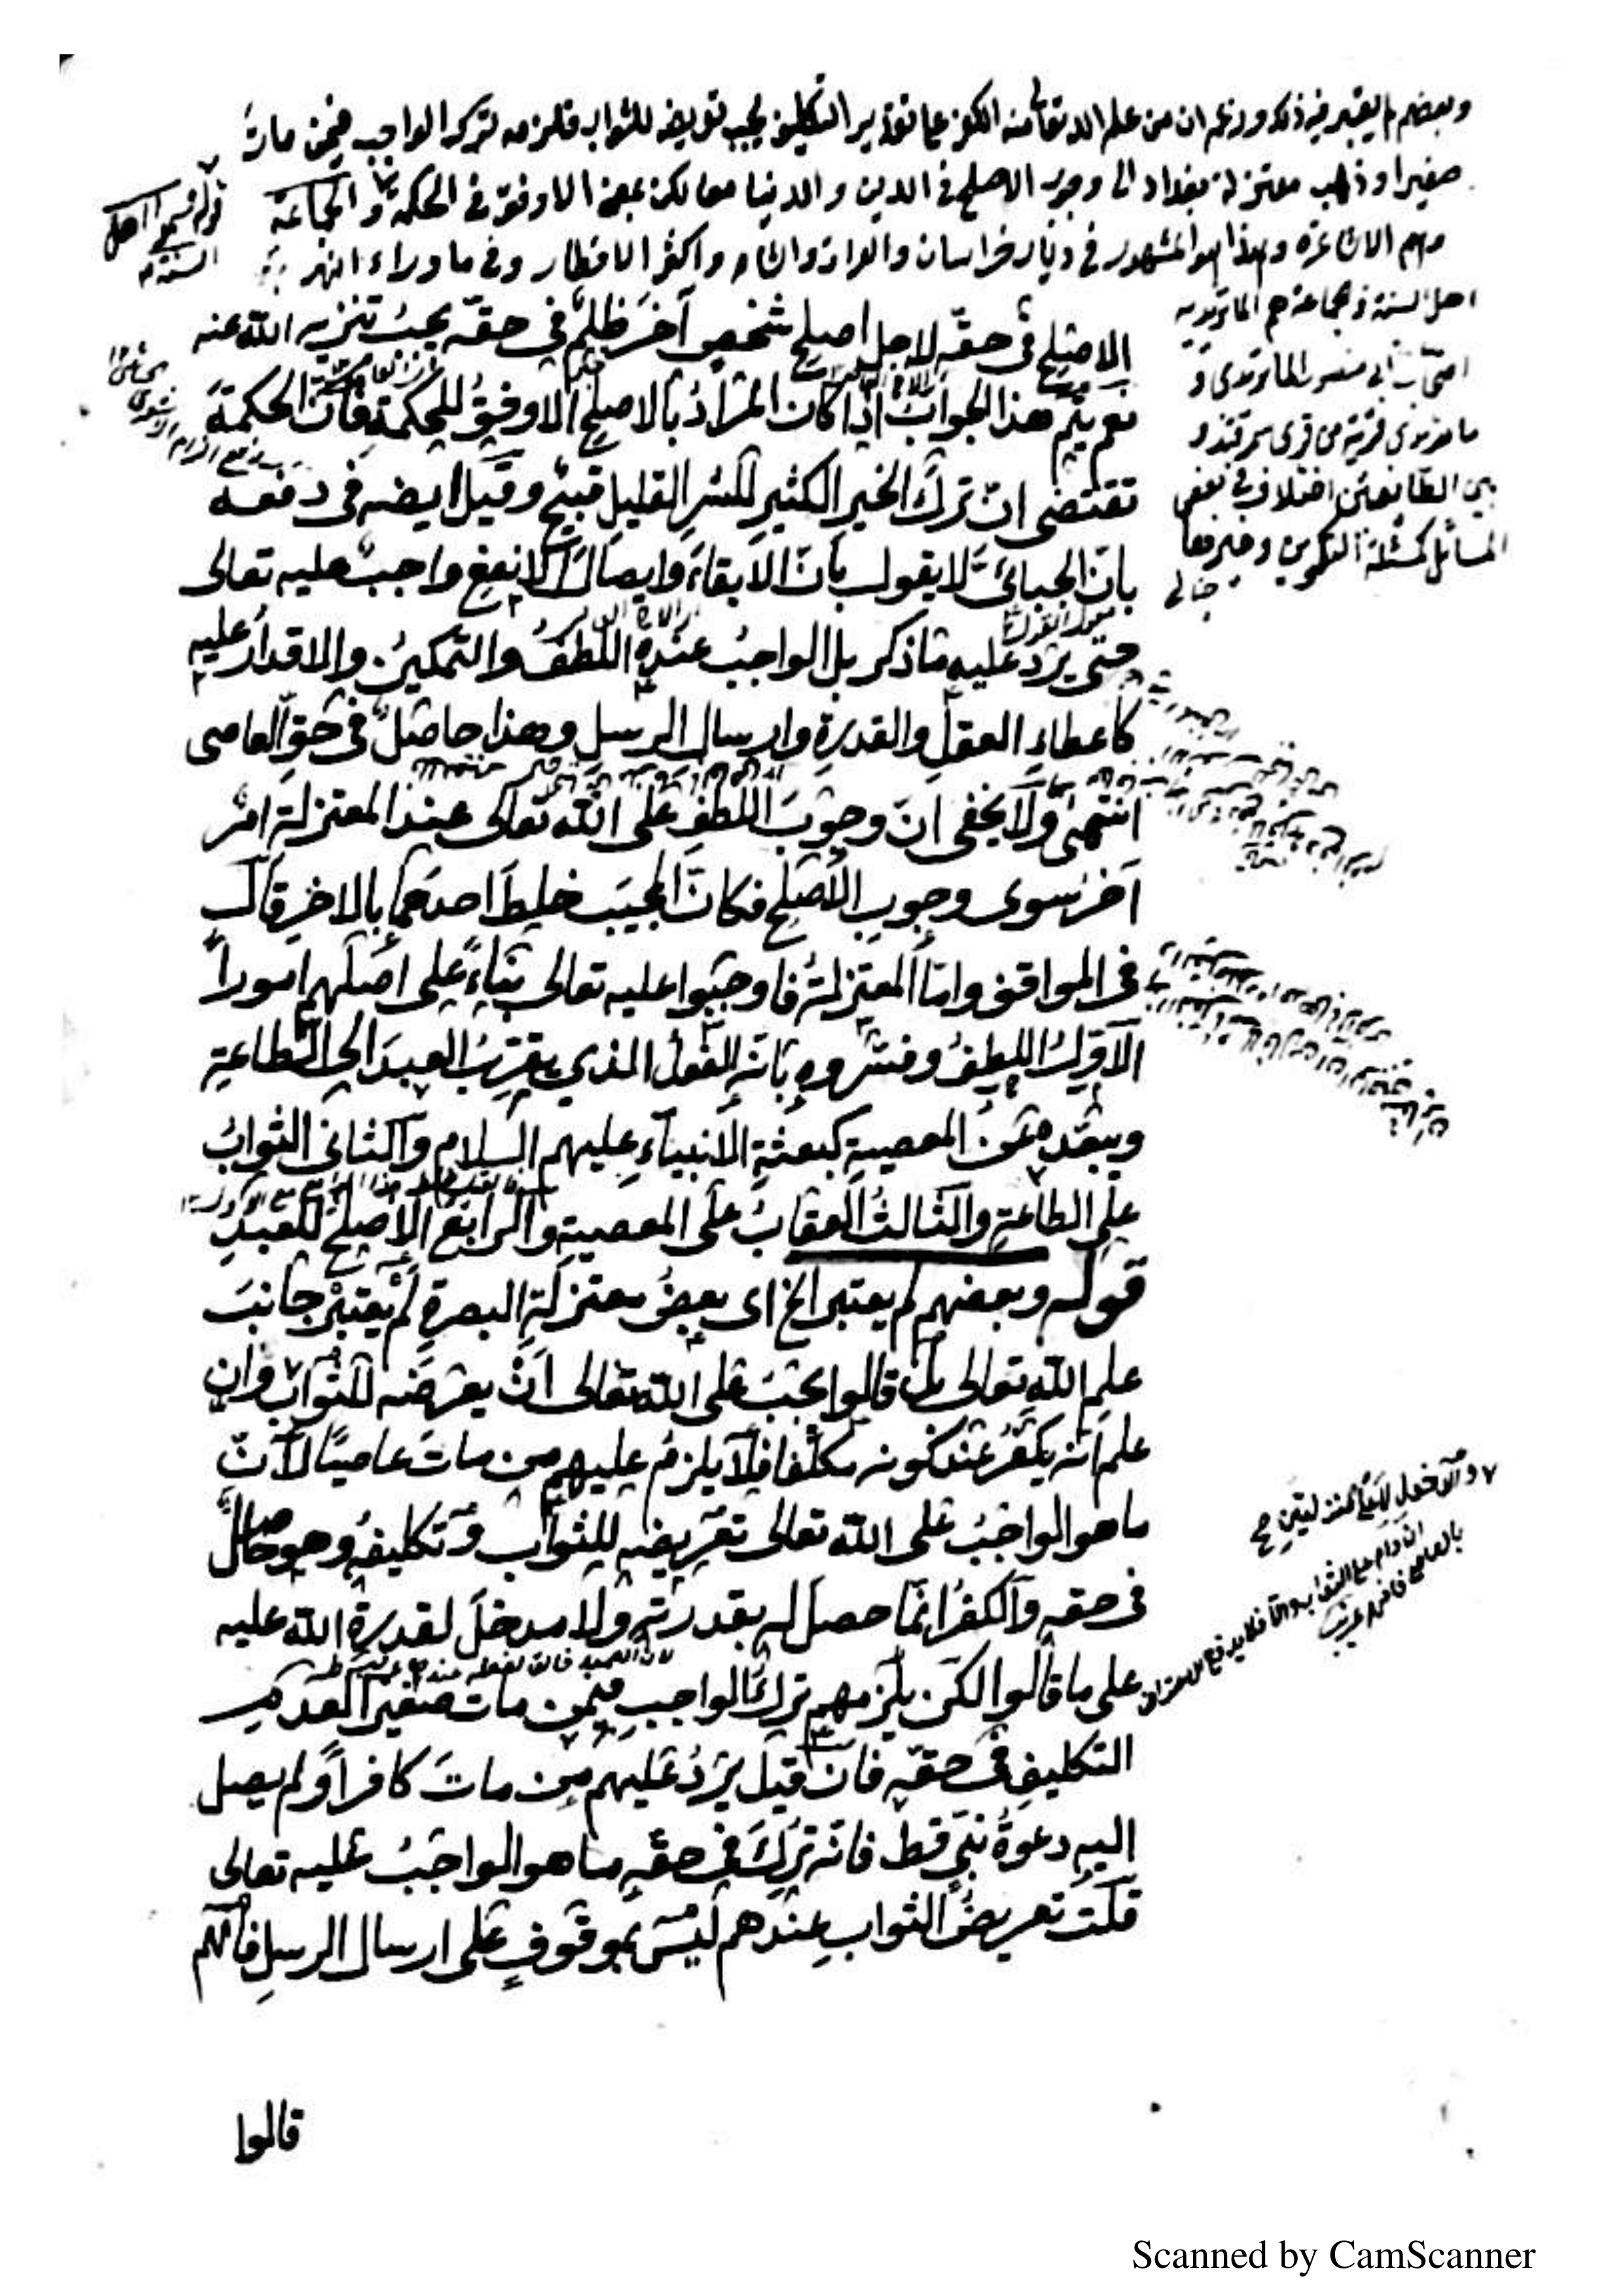 وبعضهم لم يعتبر في ذلك وزعم ان من علم الله تعالى منه الكفر على تقدير التكليف يجب تعريضه للثواب فلزمه ترك الواجب فيمن مات
صغيرا وذهب معتزلة بغداد الى وجوب الاصلح في الدين والدنيا معا لكن بمعنى الاوفق في الحكمة والجماعة
وهم الاشاعرة وهذا هو المشهور في ديار خراسان والعراق والشام واكثر الاقطار وفي ما وراء النهر
قوله فسموا اهل
السنة
اهل السنة والجماعة هم الماتريدية
اصحاب ابي منصور الماتريدي و
ماتريدي قرية من قرى سمرقند و
بين الطائفتين اختلاف في بعض
المسائل كمسئلة التكوين وغيرها
خيالي
الاصلح في حقه لاجل اصلح شخص آخر ظلم في حقه يجب تنزيه الله عنه
نعم يتم هذا الجواب اذا كان المراد بالاصلح الاوفق للحكمة فان الحكمة
تقتضي ان ترك الخير الكثير للشر القليل قبيح وقيل ايضه في دفعه
بان الجبائي لا يقول بان الابقاء وايصال الانفع واجب عليه تعالى
حتى يرد عليه ما ذكر بل الواجب عنده اللطف والتمكين والاقدار عليه
كاعطاء العقل والقدرة وارسال الرسل وهذا حاصل في حق العاصى
انتهى ولا يخفى ان وجوب اللطف على الله تعالى عند المعتزلة امر
آخر سوى وجوب الاصلح فكان المجيب خلط احدهما بالاخر قال
في المواقف واما المعتزلة فاوجبوا عليه تعالى بناء على اصلهم امورا
الاول اللطف وفسروه بانه الفعل الذي يقرب العبد الى الطاعة
ويبعده عن المعصية كبعثة الانبياء عليهم السلام والثاني الثواب
على الطاعة والثالث العقاب على المعصية والرابع الاصلح للعبد
قوله وبعضهم لم يعتبر الخ اى بعض معتزلة البصرة لم يعتبر جانب
علم الله تعالى بل قالوا يجب على الله تعالى ان يعرضه للثواب وان
علم انه يكفر عند كونه مكلفا فلا يلزم عليهم من مات عاصيا لان
ما هو الواجب على الله تعالى تعريضه للثواب وتكليفه وهو حاصل
في حقه والكفر انما حصل له بقدرته ولا مدخل لقدرة الله عليه
على ما قالوا لكن يلزمهم ترك الواجب فيمن مات صغيرا لعدم
التكليف في حقه فان قيل يرد عليهم من مات كافرا ولم يصل
اليه دعوة نبي قط فانه ترك في حقه ما هو الواجب عليه تعالى
قلت تعريض الثواب عندهم ليس بموقوف على ارسال الرسل فانهم
قالوا
Scanned by CamScanner